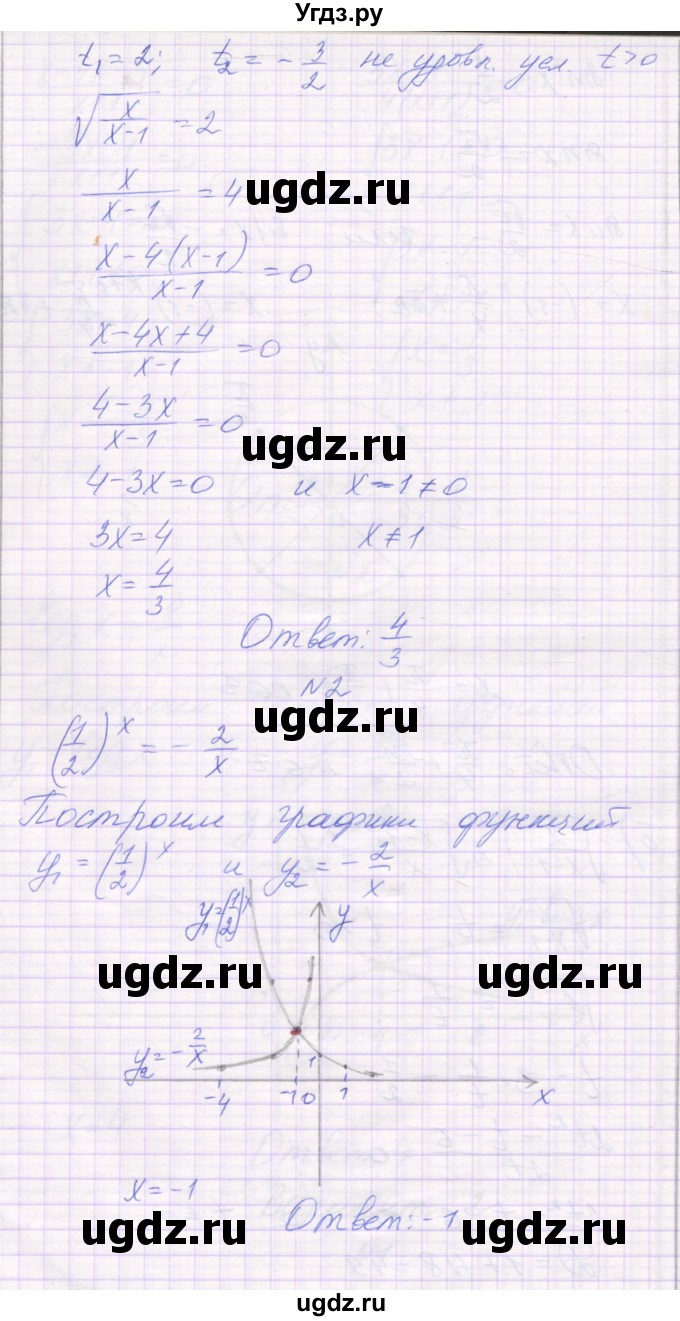 Угдз.ру
t₁ = 2; t₂ = - 3/2 не удовл. усл. t > 0
√(x/(x-1)) = 2
x/(x-1) = 4
ugdz.ru
(x-4(x-1))/(x-1) = 0
(x-4x+4)/(x-1) = 0
(4-3x)/(x-1) = 0
ugdz.ru
4-3x=0 и x-1≠0
3x=4 x≠1
x= 4/3
Ответ: 4/3
N2
ugdz.ru
(1/2)^x = - 2/x
Построим графики функций
y₁ = (1/2)^x и y₂ = - 2/x
y₁=(1/2)^x y
ugdz.ru ugdz.ru
y₂ = - 2/x 1
-4 -1 0 1 x
x = -1
Ответ: -1
ugdz.ru ugdz.ru
ugdz.ru